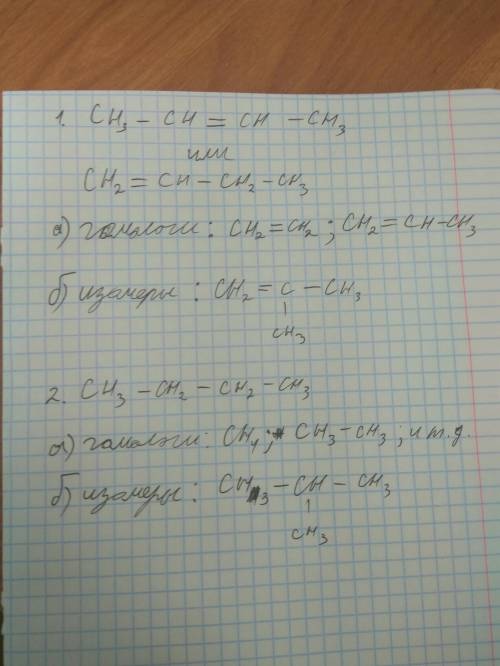 1. CH₃ – CH = CH – CH₃
или
CH₂ = CH – CH₂ – CH₃
а) гомологи: CH₂ = CH₂ ; CH₂ = CH – CH₃
б) изамеры: CH₂ = C – CH₃
CH₃
2. CH₃ – CH₂ – CH₂ – CH₃
а) гамологи: CH₄; CH₃ – CH₃ ; и т.д.
б) изамеры: CH₃ – CH – CH₃
CH₃